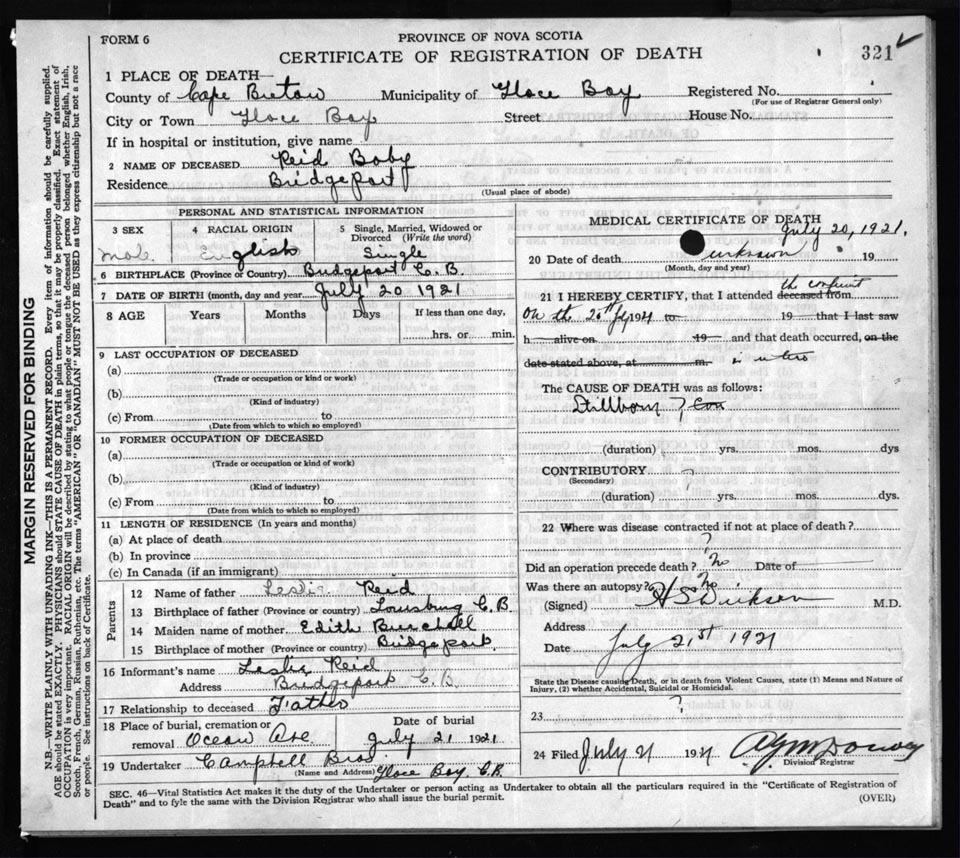 FORM 6
PROVINCE OF NOVA SCOTIA
CERTIFICATE OF REGISTRATION OF DEATH
321
1 PLACE OF DEATH—
County of Cape Breton Municipality of Glace Bay Registered No.
(For use of Registrar General only)
City or Town Glace Bay Street House No.
If in hospital or institution, give name
2 NAME OF DECEASED Reid Baby
Residence Bridgeport
(Usual place of abode)
PERSONAL AND STATISTICAL INFORMATION
3 SEX 4 RACIAL ORIGIN 5 Single, Married, Widowed or Divorced (Write the word)
Male English Single
6 BIRTHPLACE (Province or Country) Bridgeport C.B.
7 DATE OF BIRTH (month, day and year) July 20 1921
8 AGE Years Months Days If less than one day,
hrs. or min.
9 LAST OCCUPATION OF DECEASED
(a)
(Trade or occupation or kind or work)
(b)
(Kind of industry)
(c) From to
(Date from which to which so employed)
10 FORMER OCCUPATION OF DECEASED
(a)
(Trade or occupation or kind of work)
(b)
(Kind of industry)
(c) From to
(Date from which to which so employed)
11 LENGTH OF RESIDENCE (In years and months)
(a) At place of death
(b) In province
(c) In Canada (if an immigrant)
Parents
12 Name of father Leslie Reid
13 Birthplace of father (Province or country) Louisburg C.B.
14 Maiden name of mother Edith Burchell
15 Birthplace of mother (Province or country) Bridgeport
16 Informant's name Leslie Reid
Address Bridgeport C.B
17 Relationship to deceased Father
18 Place of burial, cremation or removal Ocean Ave Date of burial July 21 1921
19 Undertaker Campbell Bros
(Name and Address) Glace Bay C.B.
MEDICAL CERTIFICATE OF DEATH
July 20, 1921.
20 Date of death Unknown 19
(Month, day and year)
21 I HEREBY CERTIFY, that I attended deceased from
On the 20th 1921 to 19 that I last saw
h alive on 19 and that death occurred, on the
date stated above, at m. in utero
The CAUSE OF DEATH was as follows:
Stillborn ?
(duration) yrs. mos. dys
CONTRIBUTORY ?
(Secondary)
(duration) yrs. mos. dys.
22 Where was disease contracted if not at place of death?
?
Did an operation precede death? No Date of
Was there an autopsy? No
(Signed) M.D.
Address
Date July 21st 1921
State the Disease causing Death, or in death from Violent Causes, state (1) Means and Nature of Injury, (2) whether Accidental, Suicidal or Homicidal.
23 ?
24 Filed July 21 1921
Division Registrar
SEC. 46—Vital Statistics Act makes it the duty of the Undertaker or person acting as Undertaker to obtain all the particulars required in the "Certificate of Registration of
Death" and to fyle the same with the Division Registrar who shall issue the burial permit.
(OVER)
MARGIN RESERVED FOR BINDING
N.B.—WRITE PLAINLY WITH UNFADING INK—THIS IS A PERMANENT RECORD. Every item of information should be carefully supplied.
AGE should be stated EXACTLY. PHYSICIANS should STATE CAUSE OF DEATH in plain terms, so that it may be properly classified. Exact statement of
OCCUPATION is very important. RACIAL ORIGIN will be described by stating to what people or tongue the deceased person belonged whether English, Irish,
Scotch, French, German, Russian, Ruthenian, etc. The terms "AMERICAN" or "CANADIAN" MUST NOT BE USED as they express citizenship but not a race
or people. See instructions on back of Certificate.